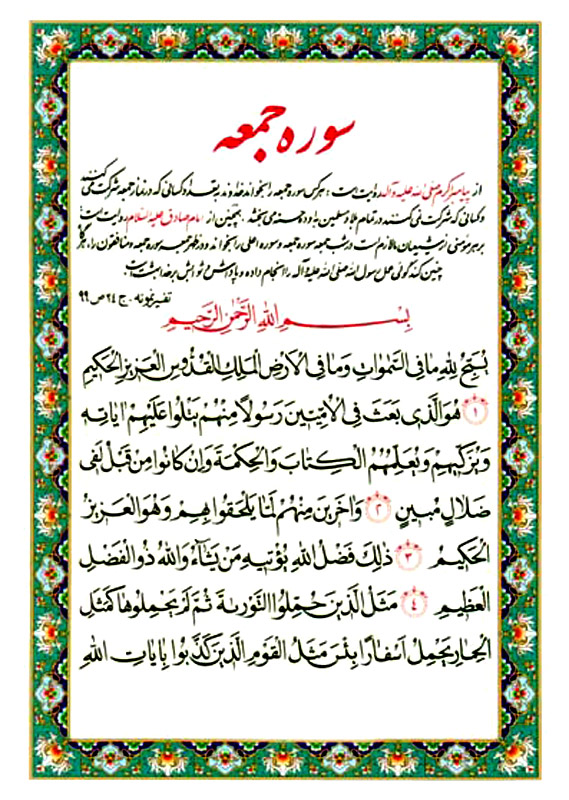 سوره جمعه
از پیامبر کرم صلی الله علیه وآله روایت است : هرکس سوره جمعه را بخواند خداوند بتعداد کسانی که در نماز جمعه شرکت می کنند
و کسانی که شرکت نمی کنند در تمام بلاد مسلمین به او حسنه می بخشد . همچنین از امام صادق علیه السلام روایت است
بر هر مؤمنی از شیعیان ما لازم است در شب جمعه سوره جمعه و سوره اعلی را بخواند و در ظهر جمعه سوره جمعه و منافقون را، هرگاه
چنین کند گوئی عمل رسول الله صلی الله علیه وآله را انجام داده و پاداش و ثوابش بر خدا بهشت است.
تفسیر نمونه . ج ٢٤ ص ٩٩
بِسْمِ اللهِ الرَّحْمٰنِ الرَّحیمِ
یُسَبِّحُ لِلّٰهِ مَا فِی السَّمٰوَاتِ وَمَا فِی الْاَرْضِ الْمَلِكِ الْقُدُّوسِ الْعَزیزِ الْحَكیمِ
﴿١﴾ هُوَ الَّذی بَعَثَ فِی الْاُمِّیّینَ رَسُولًا مِنْهُمْ یَتْلُوا عَلَیْهِمْ اٰیَاتِهِ
وَیُزَكّیهِمْ وَیُعَلِّمُهُمُ الْكِتَابَ وَالْحِكْمَةَ وَاِنْ كَانُوا مِنْ قَبْلُ لَفی
ضَلَالٍ مُبینٍ ﴿٢﴾ وَاٰخَرینَ مِنْهُمْ لَمَّا یَلْحَقُوا بِهِمْ وَهُوَ الْعَزیزُ
الْحَكیمُ ﴿٣﴾ ذٰلِكَ فَضْلُ اللهِ یُؤْتیهِ مَنْ یَشَاءُ وَاللهُ ذُو الْفَضْلِ
الْعَظیمِ ﴿٤﴾ مَثَلُ الَّذینَ حُمِّلُوا التَّوْرٰیةَ ثُمَّ لَمْ یَحْمِلُوهَا كَمَثَلِ
الْحِمَارِ یَحْمِلُ اَسْفَارًا بِئْسَ مَثَلُ الْقَوْمِ الَّذینَ كَذَّبُوا بِاٰیَاتِ اللهِ